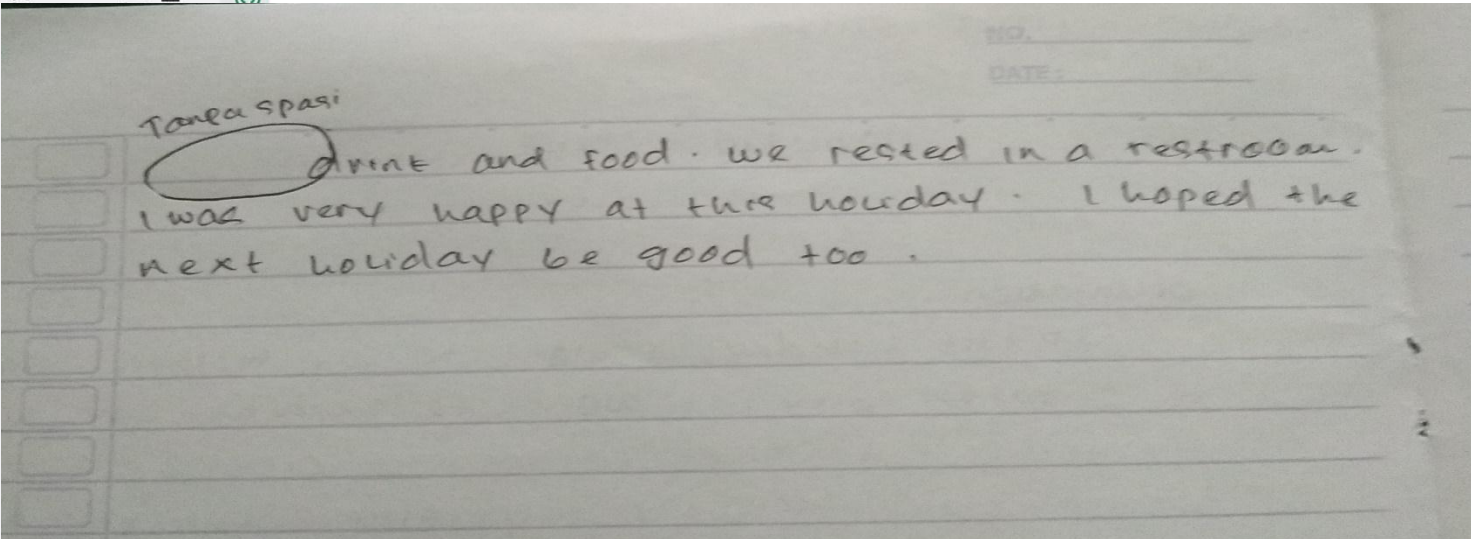 NO.
DATE:
Tanpa spasi
drink and food. we rested in a restroom.
I was very happy at this holiday. I hoped the
next holiday be good too.